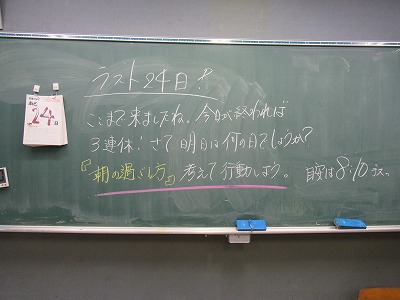 ラスト24日!
ここまで来ましたね。今日が終われば
3連休!さて明日は何の日でしょうか?
『朝の過ごし方』考えて行動しよう。 目安は8:10です。
24